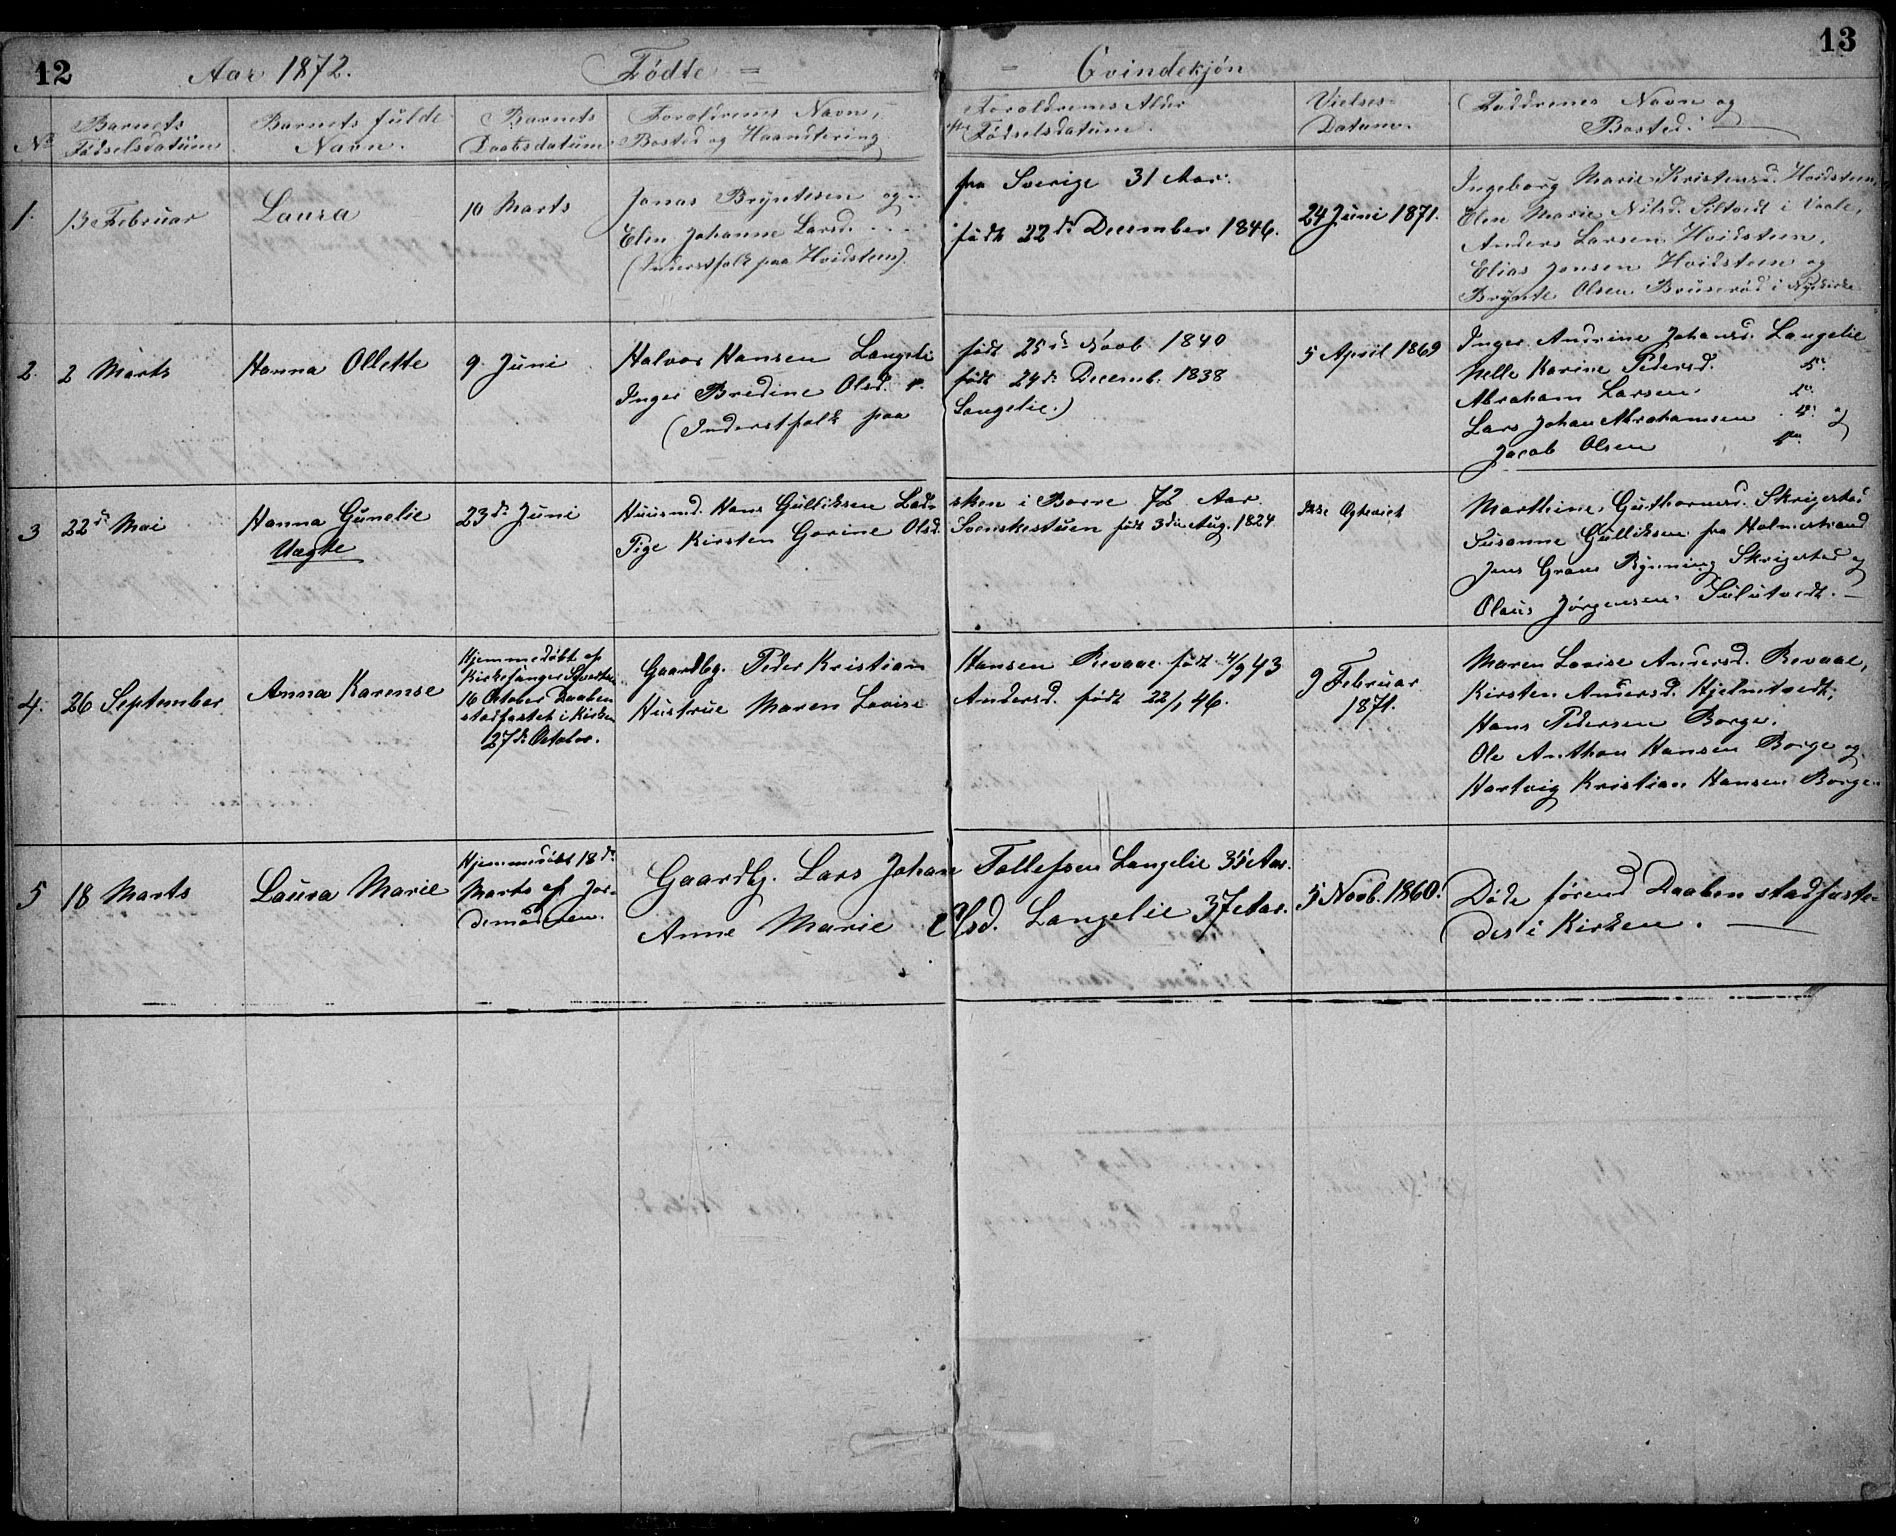 12
Aar 1872.
Födte =
= Qvindekjön
13
No
Barnets
Födselsdatum
Barnets fulde
Navn.
Barnets
Daabsdatum
Forældrenes Navn,
Bosted og Haandtering
Forældrenes Alder
Födselsdatum.
Vielses-
Datum.
Faddrenes Navn og
Bosted.
1.
13 Februar
Laura
10 Marts
Jonas Bryntesen og
Elen Johanne Larsd.
(Inderstfolk paa Hvidsteen)
fra Sverige 31 Aar.
født 22de December 1846.
24 Juni 1871.
Ingeborg Marie Kristensd. Hvidsteen,
Elen Marie Nilsd. Siltvedt i Vaale,
Anders Larsen Hvidsteen,
Elias Jensen Hvidsteen og
Brynte Olsen Bruserød i Nykirke
2.
2 Marts
Hanna Ollette
9 Juni
Halvor Hansen Langeli
Inger Bredine Olsd.
(Inderstfolk paa
født 25de Novb. 1840
født 24de Decemb. 1838
Langelie.)
5 April 1869
Inger Andrine Johansd. Langelie
Nelle Karine Pedersd. do
Abraham Larsen. do
Lars Johan Abrahamsen do og
Jacob Olsen do
3
22de Mai
Hanna Gunelie
Uægte
23de Juni
Huusmd. Hans Gulliksen Lad-
Pige Kirsten Gorine Olsd.
sken i Borre 72 Aar.
Svenskestuen født 3die Aug. 1824
Ikke Ægteviet
Marthine Guthormsd. Skrigestad
Susanne Gulliksen fra Holmestrand
Jens Grave Rynning Skrigestad og
Olaus Jørgensen
4.
26 September
Anna Karense
Hjemmedøbt af
Kirkesanger
16 October Daaben
stadfæstet i Kirken
27de October.
Gaardbg. Peder Kristian
Hustrue Maren Lovise
Hansen Revaae født 4/9 43
Andersd. født 22/1 46.
9 Februar
1871.
Maren Lovise Andersd. Revaae,
Kirsten Andersd. Hjelmtvedt,
Hans Pedersen Borge.
Ole Anthon Hansen Borge og
Hartvig Kristian Hansen Borge
5
18 Marts
Laura Marie
Hjemmedöbt 18de
Marts af Jor-
demoderen.
Gaardbg. Lars Johan Tollefsen Langelie 35 Aar.
Anne Marie Olsd. Langelie 37 Aar.
5 Novb. 1860.
Døde førend Daaben stadfæste-
des i Kirken.